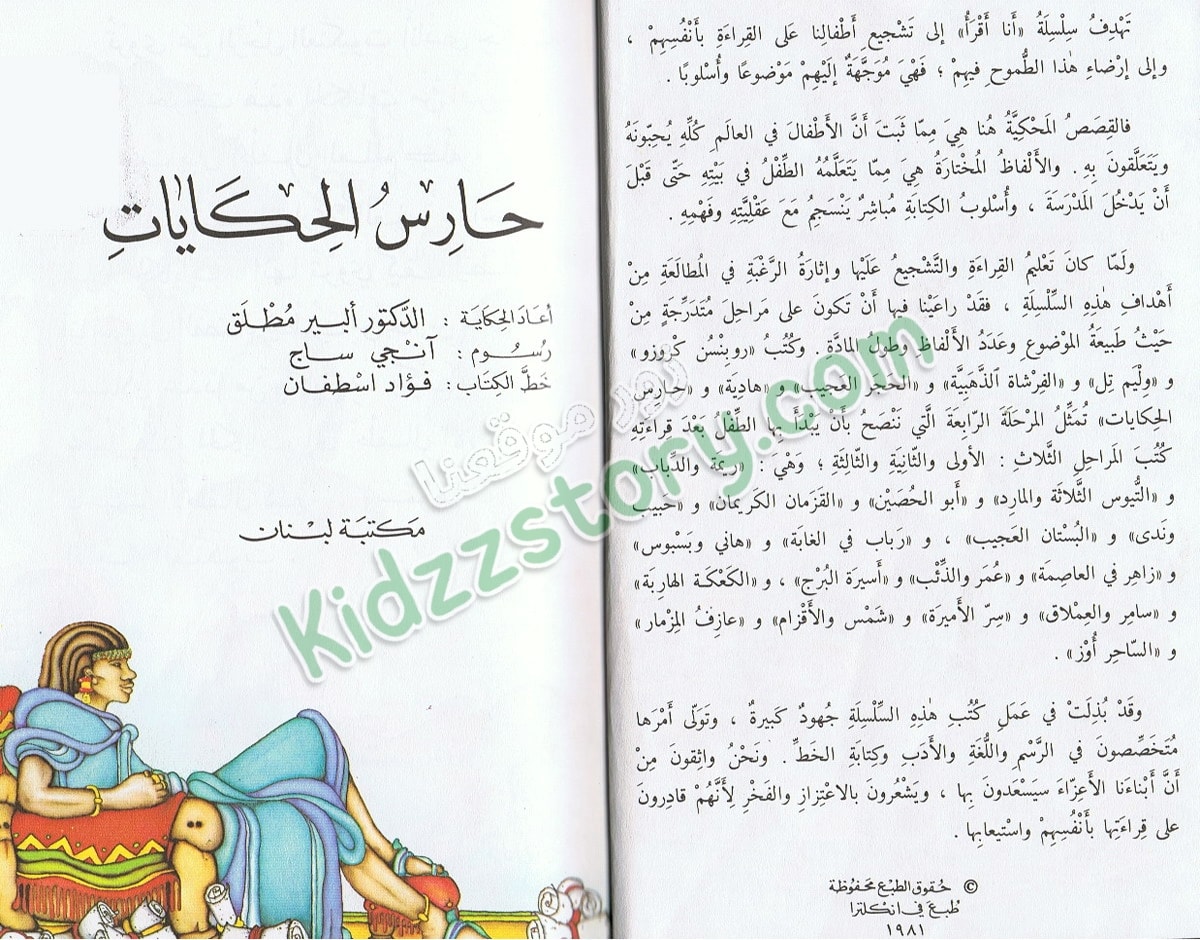 تَهْدِفُ سِلْسِلَةُ «أَنا أَقْرَأُ» إلى تَشْجيعِ أَطْفالِنا عَلى القِراءَةِ بِأَنْفُسِهِمْ ،
وإلى إرْضاءِ هٰذا الطُّموحِ فيهِمْ ؛ فَهْيَ مُوَجَّهَةٌ إلَيْهِمْ مَوْضوعًا وأُسْلوبًا .
فالقِصَصُ المَحْكِيَّةُ هُنا هِيَ مِمّا ثَبَتَ أَنَّ الأَطْفالَ في العالَمِ كُلِّهِ يُحِبّونَهُ
ويَتَعَلَّقونَ بِهِ . والأَلْفاظُ المُخْتارَةُ هِيَ مِمّا يَتَعَلَّمُهُ الطِّفْلُ في بَيْتِهِ حَتّى قَبْلَ
أَنْ يَدْخُلَ المَدْرَسَةَ ، وأُسْلوبُ الكِتابَةِ مُباشِرٌ يَنْسَجِمُ مَعَ عَقْلِيَّتِهِ وفَهْمِهِ .
ولَمّا كانَ تَعْليمُ القِراءَةِ والتَّشْجيعُ عَلَيْها وإثارَةُ الرَّغْبَةِ في المُطالَعَةِ مِنْ
أَهْدافِ هٰذِهِ السِّلْسِلَةِ ، فَقَدْ راعَيْنا فيها أَنْ تَكونَ على مَراحِلَ مُتَدَرِّجَةٍ مِنْ
حَيْثُ طَبيعَةُ المَوْضوعِ وعَدَدُ الأَلْفاظِ وطولُ المادَّةِ . وكُتُبُ «روبِنْسُن كْروزو»
و «وِلْيَم تِل» و «الفِرْشاة الذَّهَبِيَّة» و «الحَجَر العَجيب» و «هادِيَة» و «حارِس
الحِكايات» تُمَثِّلُ المَرْحَلَةَ الرّابِعَةَ الَّتي نَنْصَحُ بِأَنْ يَبْدَأَ بِها الطِّفْلُ بَعْدَ قِراءَتِهِ
كُتُبَ المَراحِلِ الثَّلاثِ : الأولى والثّانِيَةِ والثّالِثَةِ ؛ وَهْيَ : «ريمَة والدِّباب»
و «التُّيوس الثَّلاثَة والمارِد» و «أَبو الحُصَيْن» و «القَزَمان الكَريمان» و «حَبيب
ونَدى» و «البُسْتان العَجيب» ، و «رَباب في الغابَة» و «هاني وبَسْبوس»
و «زاهِر في العاصِمَة» و «عُمَر والذِّئْب» و «أَسيرَة البُرْج» ، و «الكَعْكَة الهارِبَة»
و «سامِر والعِمْلاق» و «سِرّ الأَميرَة» و «شَمْس والأَقْزام» و «عازِف المِزْمار»
و «السّاحِر أُوْز» .
وقَدْ بُذِلَتْ في عَمَلِ كُتُبِ هٰذِهِ السِّلْسِلَةِ جُهودٌ كَبيرَةٌ ، وتَوَلّى أَمْرَها
مُتَخَصِّصونَ في الرَّسْمِ واللُّغَةِ والأَدَبِ وكِتابَةِ الخَطِّ . ونَحْنُ واثِقونَ مِنْ
أَنَّ أَبْناءَنا الأَعِزّاءَ سَيَسْعَدونَ بِها ، ويَشْعُرونَ بِالاعْتِزازِ والفَخْرِ لِأَنَّهُمْ قادِرونَ
على قِراءَتِها بِأَنْفُسِهِمْ واسْتيعابِها .
© حُقوق الطبْع مَحْفوظَة
طُبعَ في انكلترا
١٩٨١
حَارِسُ الحِكَايَاتِ
أعَادَ الحِكايَة : الدّكتور ألبير مُطْلَق
رسُوم : آنجي ساج
خَطّ الكِتَاب : فؤاد اسْطفان
مَكتبَة لبْنَان
زوروا موقعنا
Kidzzstory.com